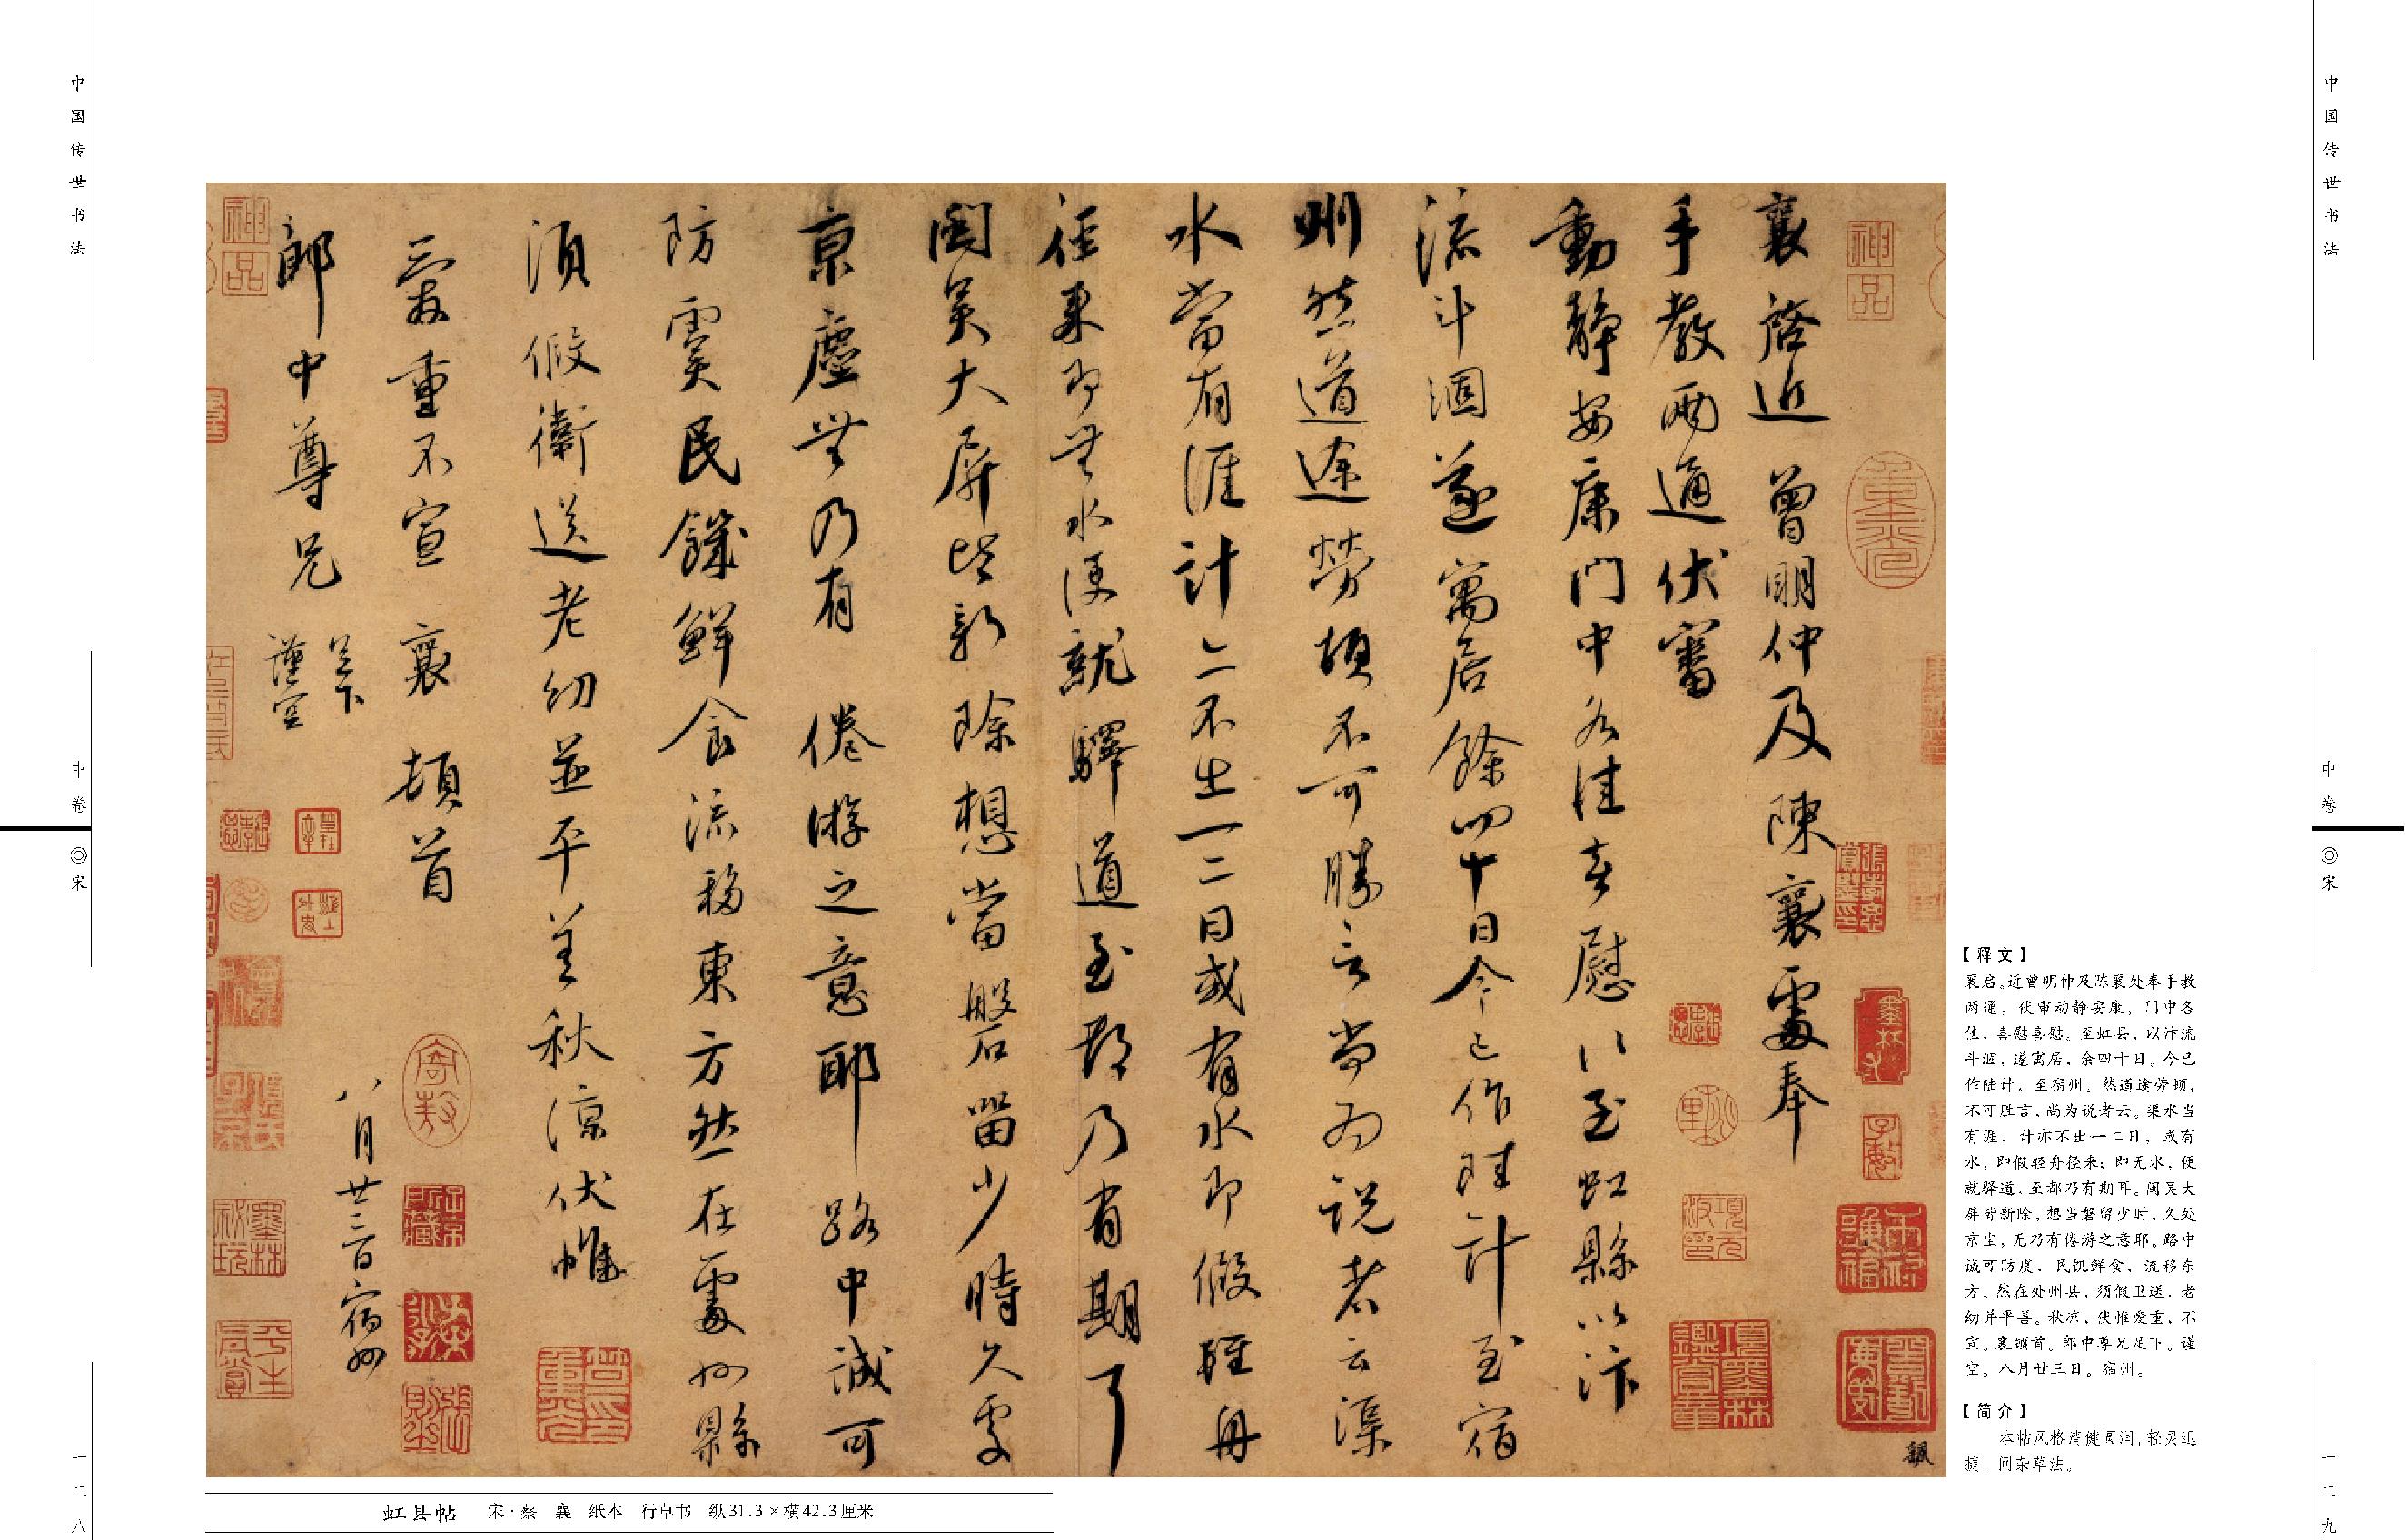 中国传世书法
中卷
◎宋
一二九
襄啓近曾明仲及陳襄處奉
手教兩通伏審
動靜安康門中各佳喜慰以至虹縣以汴
流斗涸遂寓居餘四十日今已作陸計至宿
州然道途勞頓不可勝言尚為說者云渠
水當有涯計亦不出一二日或有水即假輕舟
徑來即無水便就驛道至都乃有期耳
閩吴大屏皆新除想當磐留少時久處
京塵無乃有倦游之意耶路中誠可
防虞民饑鮮食流移東方然在處州縣
須假衛送老幼並平善秋凉伏惟
愛重不宣襄頓首
郎中尊兄足下謹空
八月廿三日宿州
神品
神品
【释文】
襄启。近曾明仲及陈襄处奉手教
两通，伏审动静安康，门中各
佳，喜慰喜慰。至虹县，以汴流
斗涸，遂寓居，余四十日。今已
作陆计，至宿州。然道途劳顿，
不可胜言，尚为说者云。渠水当
有涯，计亦不出一二日，或有
水，即假轻舟径来；即无水，便
就驿道，至都乃有期耳。闽吴大
屏皆新除，想当磐留少时，久处
京尘，无乃有倦游之意耶。路中
诚可防虞，民饥鲜食，流移东
方。然在处州县，须假卫送，老
幼并平善。秋凉，伏惟爱重，不
宣。襄顿首。郎中尊兄足下。谨
空。八月廿三日。宿州。
【简介】
本帖风格清健圆润，轻灵迅
捷，间杂草法。
虹县帖 宋·蔡 襄 纸本 行草书 纵31.3×横42.3厘米
中国传世书法
中卷
◎宋
一二八